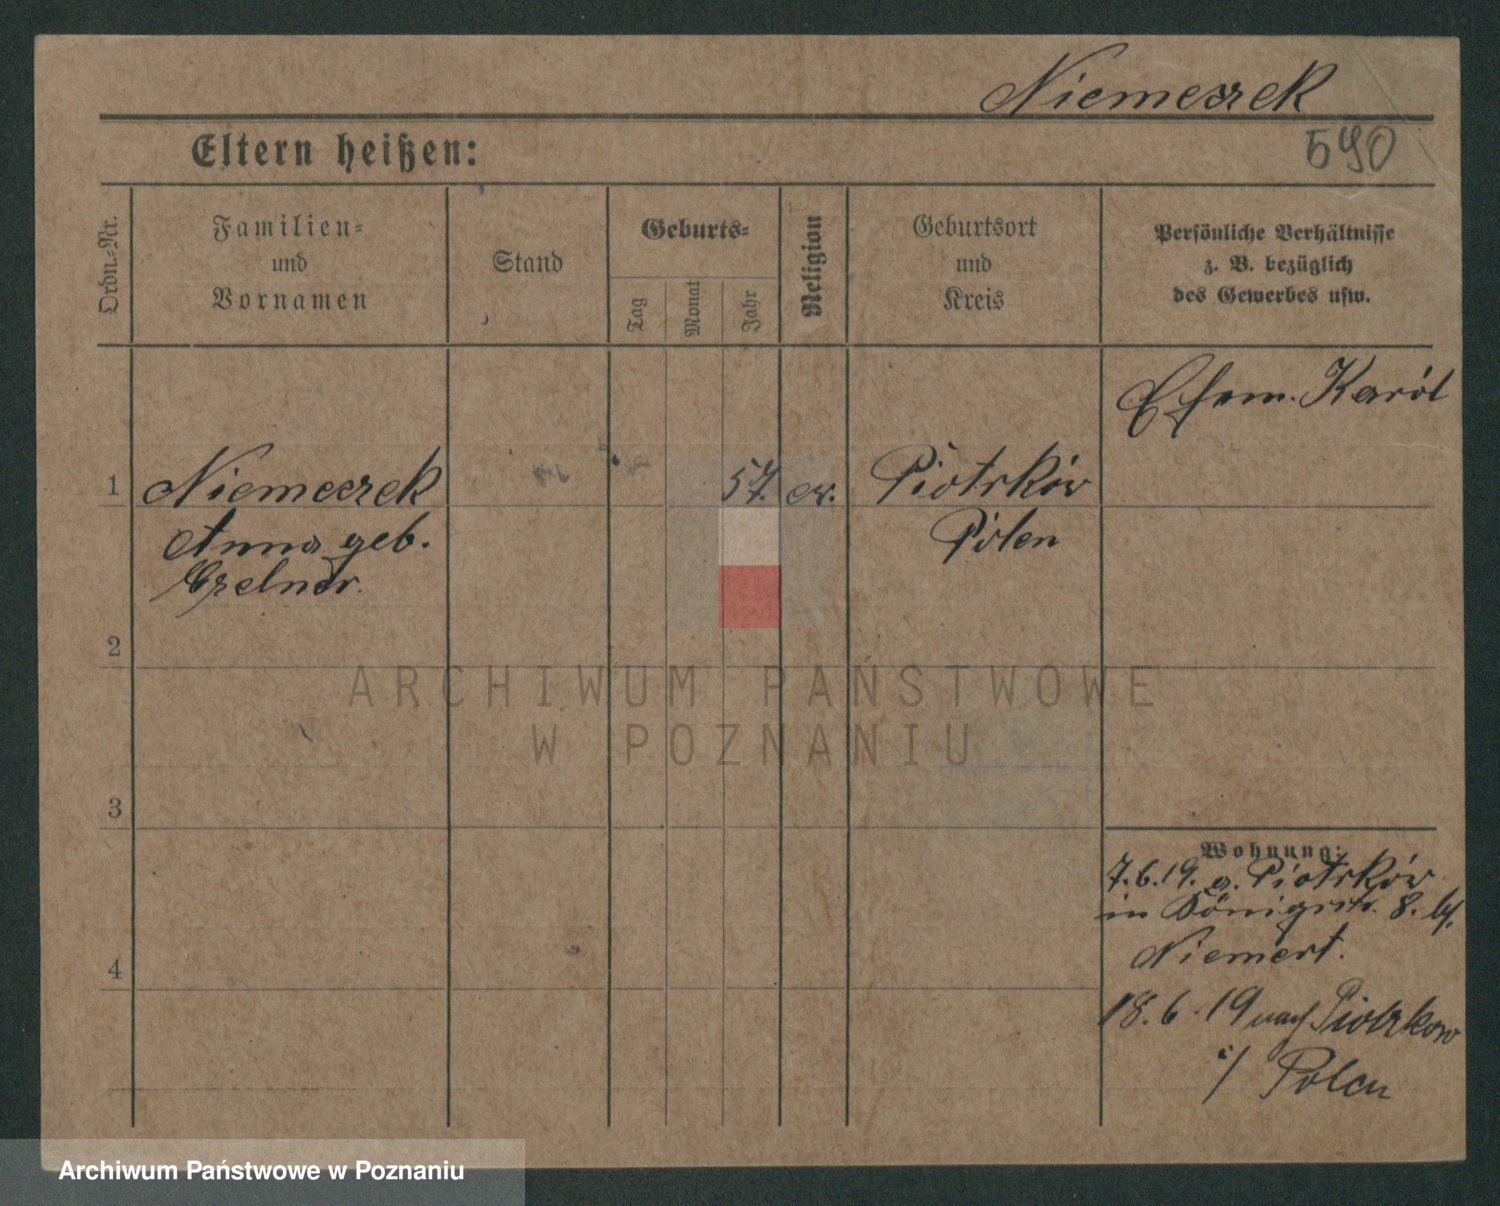 Niemeczek
590
Eltern heißen:
Ordn.-Nr.
Familien-
und
Vornamen
Stand
Geburts-
Tag
Monat
Jahr
Religion
Geburtsort
und
Kreis
Persönliche Verhältnisse
z. B. bezüglich
des Gewerbes usw.
Karól
1
Niemeczek
57.
ev.
Piotrków
Anna geb.
Polen
2
ARCHIWUM PAŃSTWOWE
W POZNANIU
3
Wohnung:
7.6.19. a. Piotrków
in Königstr. 8. bf.
4
18.6.19 nach Piotrkow
i/ Polen
Archiwum Państwowe w Poznaniu